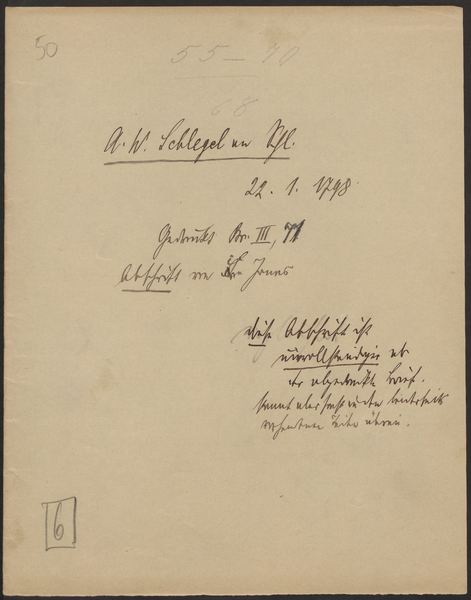 50
55–70
68
A. W. Schlegel an Schl.
22. 1. 1798.
Gedruckt Br. III, 71
Abschrift von Jonas
diese Abschrift ist
unvollständiger als
der abgedruckte Brief.
stimmt aber sonst in den
Teile überein.
6